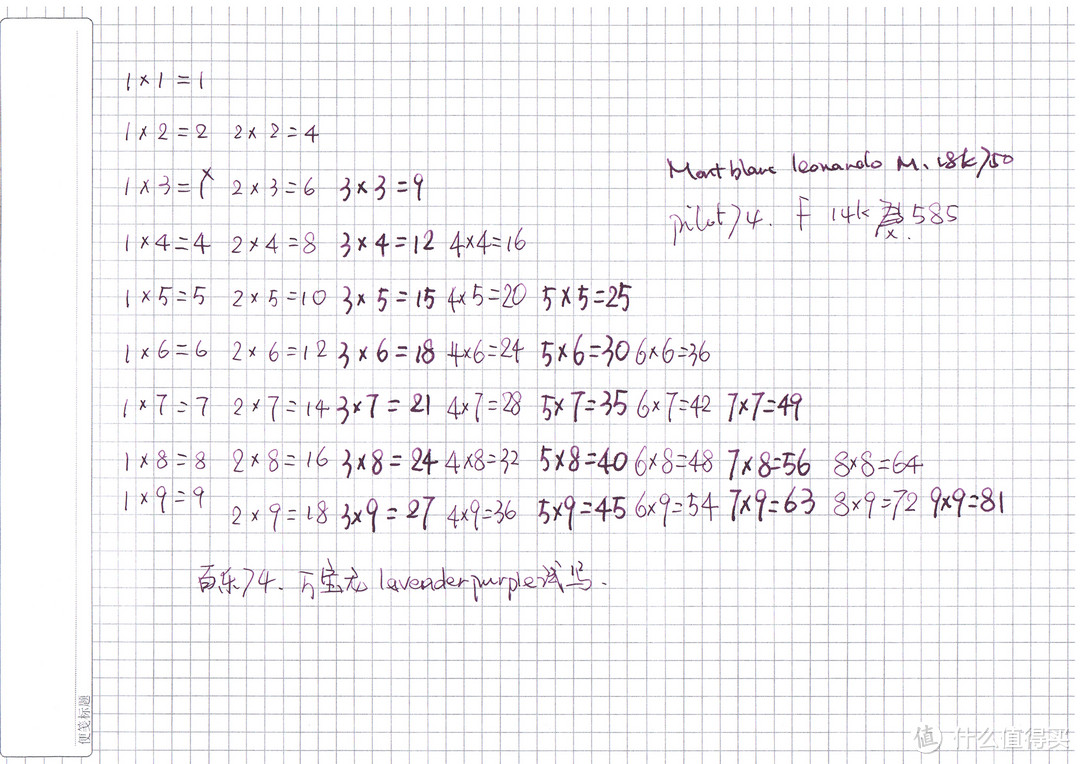 1×1=1
1×2=2 2×2=4
1×3= 2×3=6 3×3=9
1×4=4 2×4=8 3×4=12 4×4=16
1×5=5 2×5=10 3×5=15 4×5=20 5×5=25
1×6=6 2×6=12 3×6=18 4×6=24 5×6=30 6×6=36
1×7=7 2×7=14 3×7=21 4×7=28 5×7=35 6×7=42 7×7=49
1×8=8 2×8=16 3×8=24 4×8=32 5×8=40 6×8=48 7×8=56 8×8=64
1×9=9 2×9=18 3×9=27 4×9=36 5×9=45 6×9=54 7×9=63 8×9=72 9×9=81
Montblanc leonardo M. 18k 750
pilot 74. F 14k 585
百乐74. 万宝龙 lavender purple试写.
便笺标题
值 什么值得买